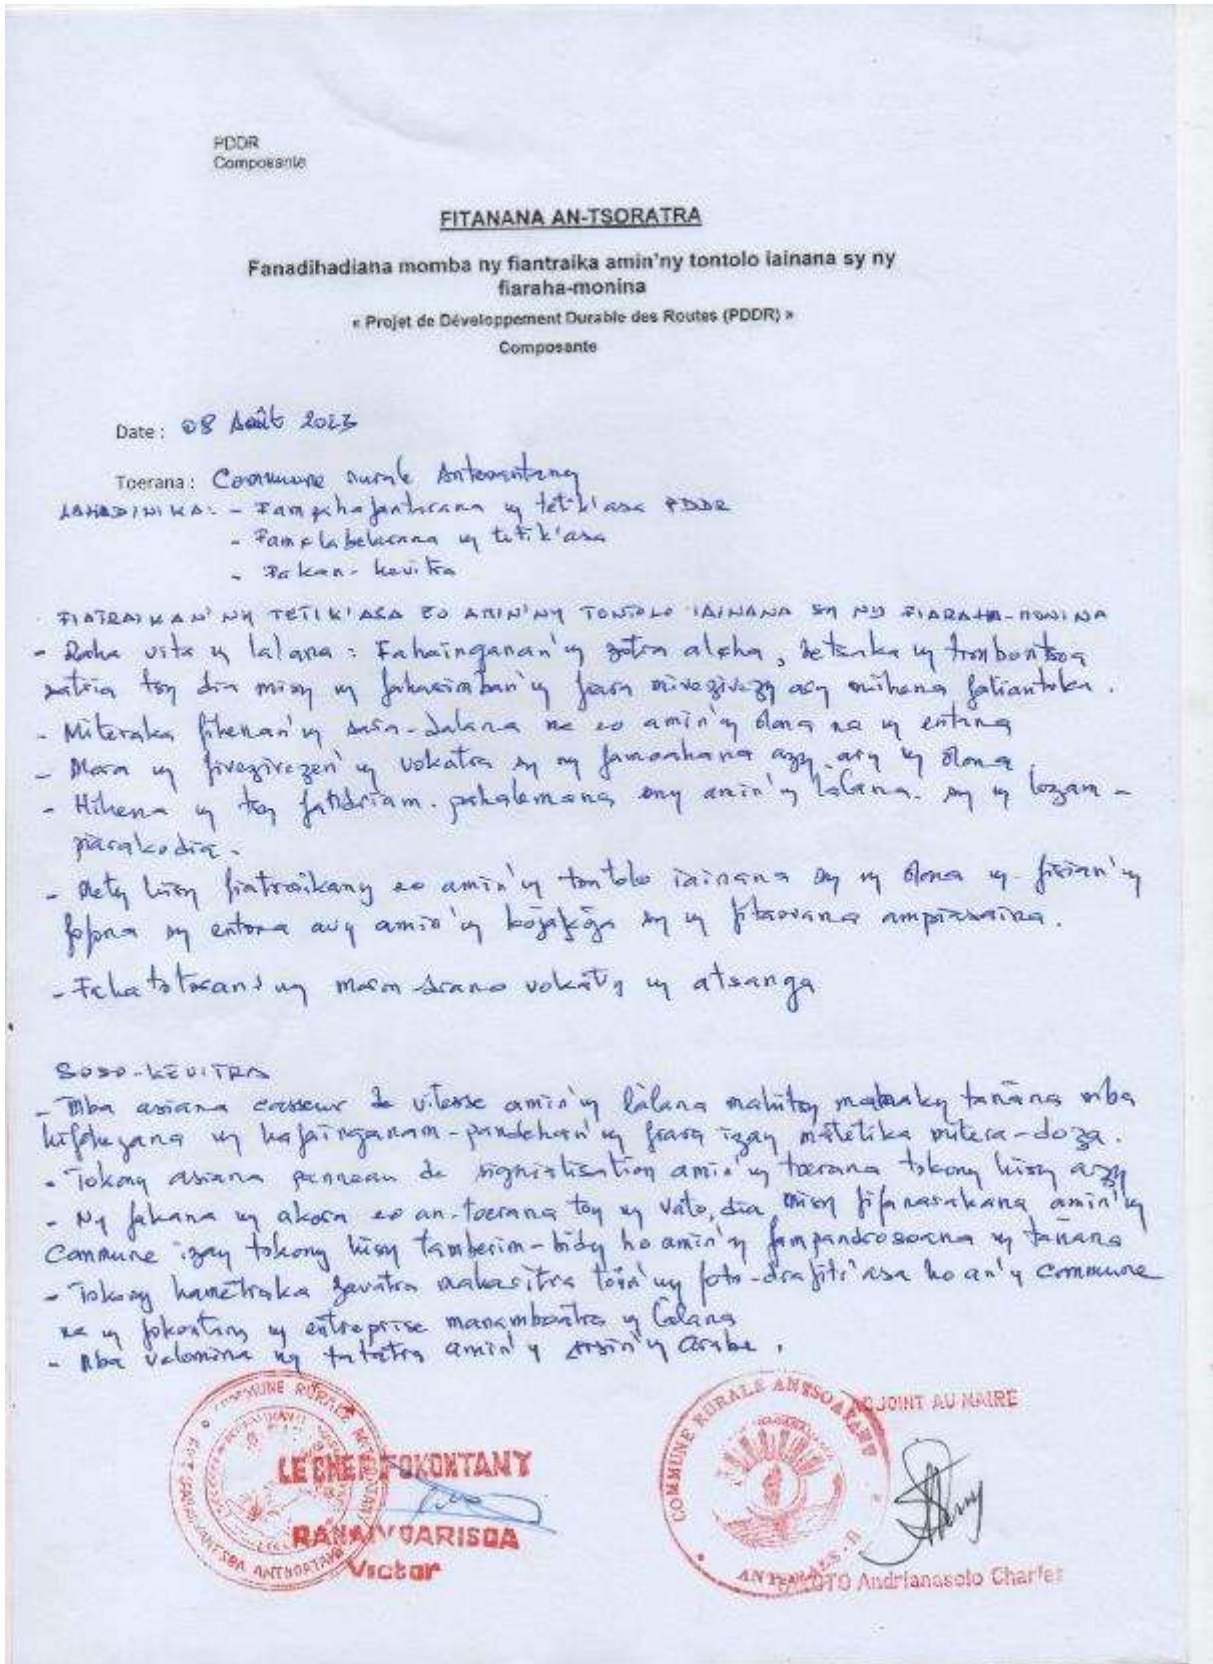 PDDR
Composante
FITANANA AN-TSORATRA
Fanadihadiana momba ny fiantraika amin'ny tontolo iainana sy ny
fiaraha-monina
« Projet de Développement Durable des Routes (PDDR) »
Composante
Date : 08 Août 2023
Toerana : Commune rurale Antsoantany
LAHADINIKA : - Fampahafantarana ny tetik'asa PDDR
- Famelabelarana ny tetik'asa
- Haka-hevitra
FIATRAIKAN'NY TETIK'ASA EO AMIN'NY TONTOLO IAINANA SY NY FIARAHA-MONINA
- Raha vita ny lalana : Fahainganan'ny zotra aleha, betsaka ny tombontsoa
satria tsy dia misy ny fahasimban'ny fiara mivezivezy ary mihena
- Miteraka fihenan'ny sara-dalana na eo amin'ny olona na ny entana
- Mora ny fivezivezen'ny vokatra sy ny famoahana azy ary ny olona
- Hihena ny tsy fandriam-pahalemana eny amin'ny lalana sy ny lozam-
piarakodia.
- Mety hisy fiatraikany eo amin'ny tontolo iainana sy ny olona ny fisian'ny
fofona sy entona avy amin'ny sy ny fitaovana ampiasaina.
- Fahatotosan'ny rano vokatry ny atsanga
SOSO-KEVITRA
- Mba asiana casseur de vitesse amin'ny làlana mahitsy mamaky tanàna mba
hifehezana ny hafainganam-pandehan'ny fiara izay matetika mitera-doza.
- Tokony asiana panneau de signialisation amin'ny toerana tokony hisy azy
- Ny fakana ny akora eo an-toerana toy ny vato, dia misy fifanarahana amin'ny
Commune izay tokony hisy tamberim-bidy ho amin'ny fampandrosoana ny tanàna
- Tokony hametraka zavatra maharitra toin'ny foto-drafitr'asa ho an'y commune
na ny fokontany ny entreprise manamboatra ny làlana
- Mba velomina ny tatatra amin'y sisin'ny arabe.
COMMUNE RURALE ANTSOATANY
LE CHEF FOKONTANY
RANAIVOARISOA
Victor
COMMUNE RURALE ANTSOATANY
ADJOINT AU MAIRE
Andrianasolo Charles